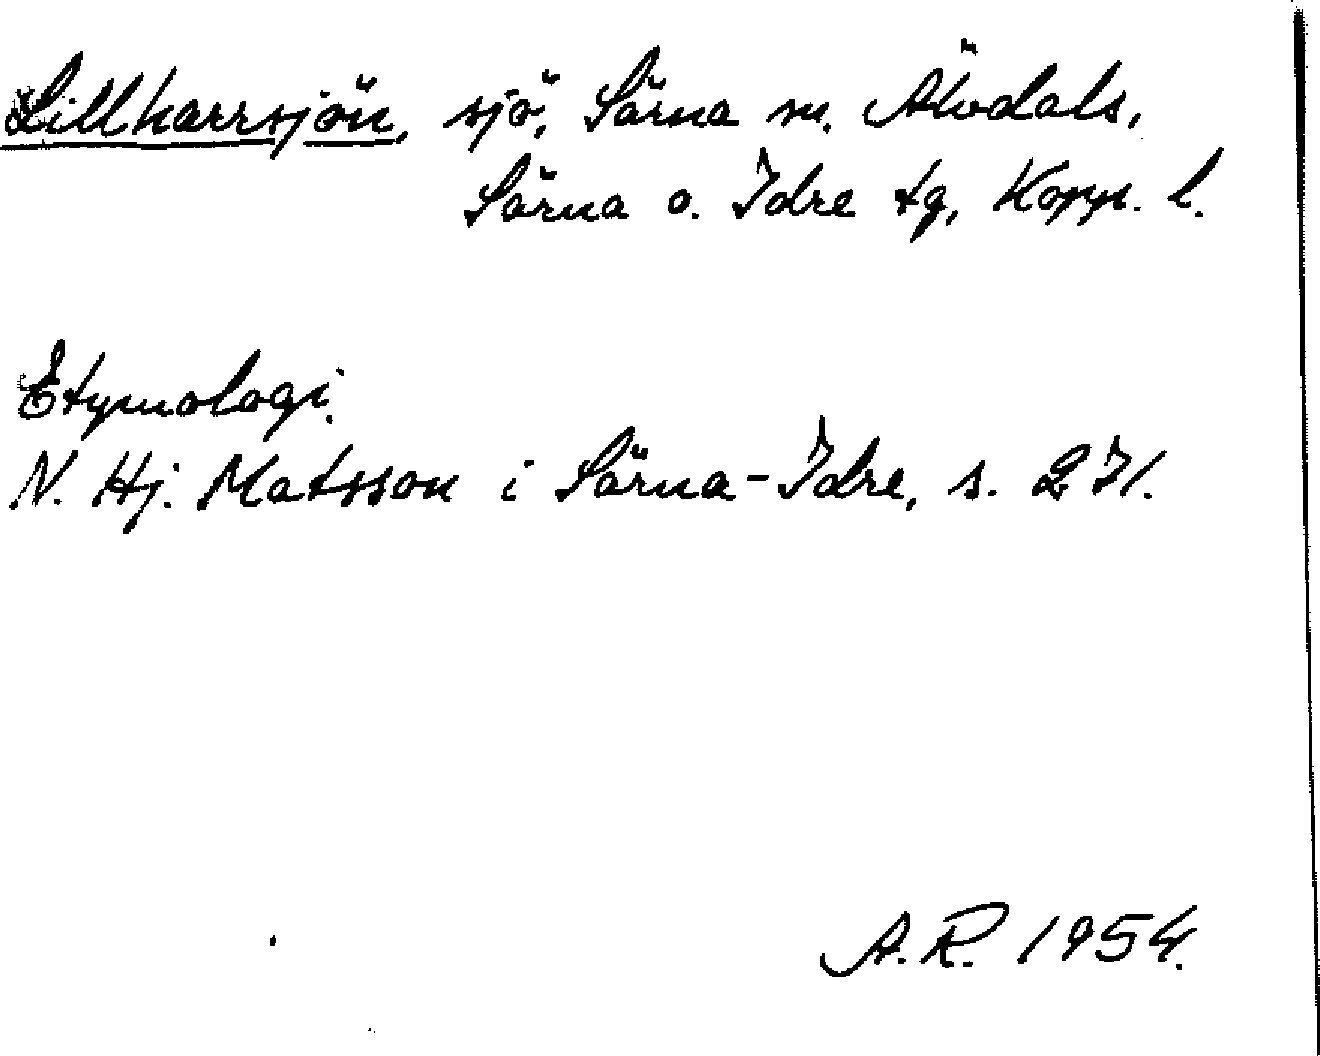 Lillharrsjön, sjö, Särna sn. Älvdals,
Särna o. Idre tg, Kopp. l.
Etymologi.
N. Hj. Matsson i Särna-Idre, s. 271.
A.R. 1954.